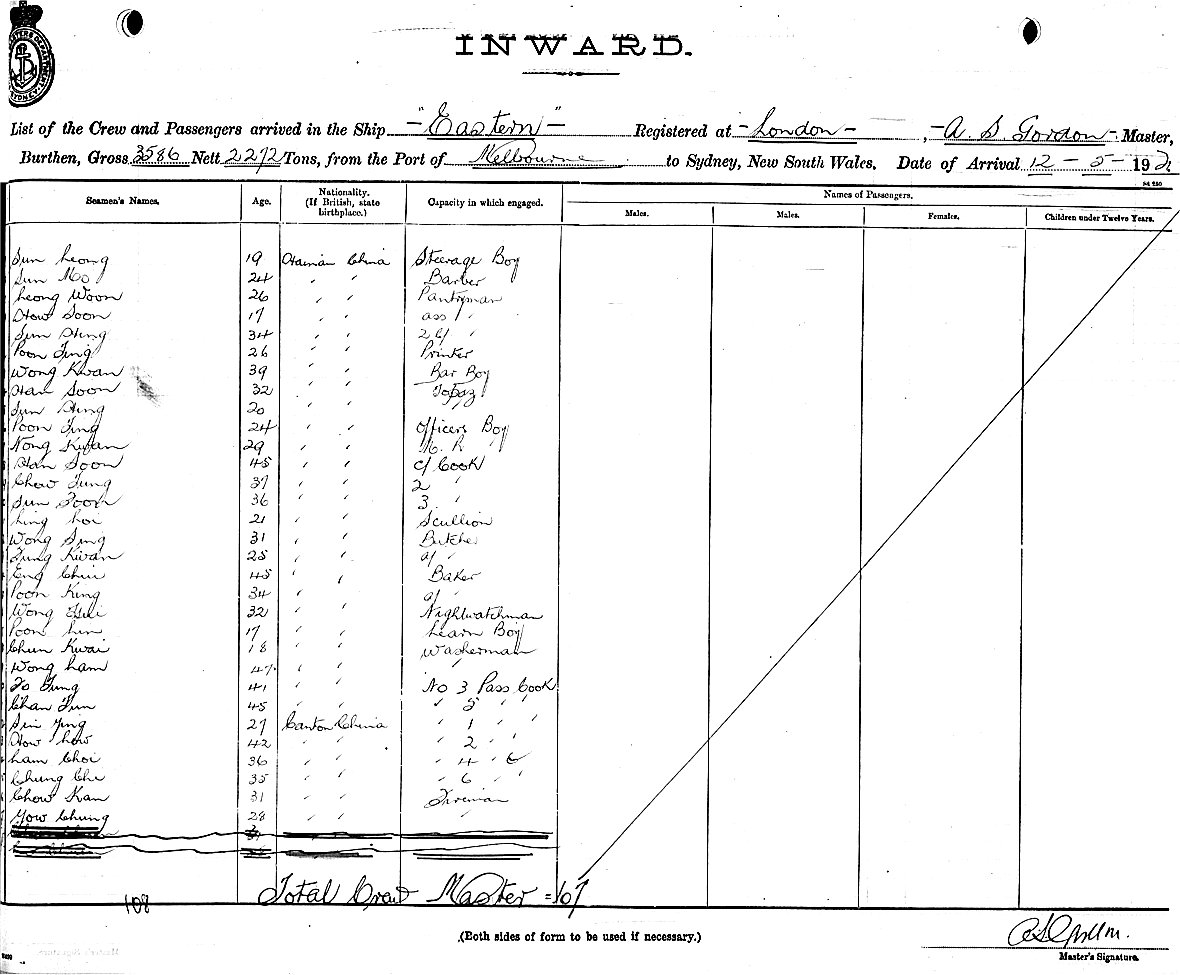 INWARD.
List of the Crew and Passengers arrived in the Ship "Eastern" Registered at London, A. S Gordon Master,
Burthen, Gross 3586 Nett 2272 Tons, from the Port of Melbourne to Sydney, New South Wales, Date of Arrival 12-5-192
Names of Passengers.
Seamen's Names. Age. Nationality. (If British, state birthplace.) Capacity in which engaged. Males. Males. Females. Children under Twelve Years.
Sun Leong 19 Hainan China Steerage Boy
Sun Mo 24 " " Barber
Leong Woon 26 " " Pantryman
How Soon 17 " " ass/ "
Sun Hing 34 " " 2 c/ "
Poon Ting 26 " " Printer
Wong Kwan 39 " " Bar Boy
Han Soon 32 " " Topaz
Sun Hing 20 " "
Poon Ting 24 " " Officers Boy
Nong Kwan 29 " "
Han Soon 45 " " c/ Cook
Chow Tung 37 " " 2 "
Sun Soon 36 " " 3 "
Ling Loi 21 " " Scullion
Wong Sing 31 " " Butcher
Tung Kwan 25 " " a/ "
Eng Chin 45 " " Baker
Poon King 34 " " a/ "
Wong 32 " " Nightwatchman
Poon Lin 17 " " Learn Boy
Chun Kwai 18 " " Washerman
Wong Lam 47 " " "
To Tung 41 " " No 3 Pass Cook
Chan Tun 45 " " " 5 " "
Sin Ying 27 Canton China " 1 " "
How Low 42 " " " 2 " "
Lam Choi 36 " " " 4 "
Chung Che 35 " " " 6 " "
Chow Kan 31 " " Fireman
Yow Chung 28 " " "
Total Crew Master = 107
108
(Both sides of form to be used if necessary.)
Master's Signature.